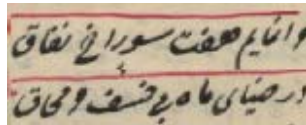 وانمایم هفت سوراخ نفاق
در ضیای ماه بی خسف و محاق